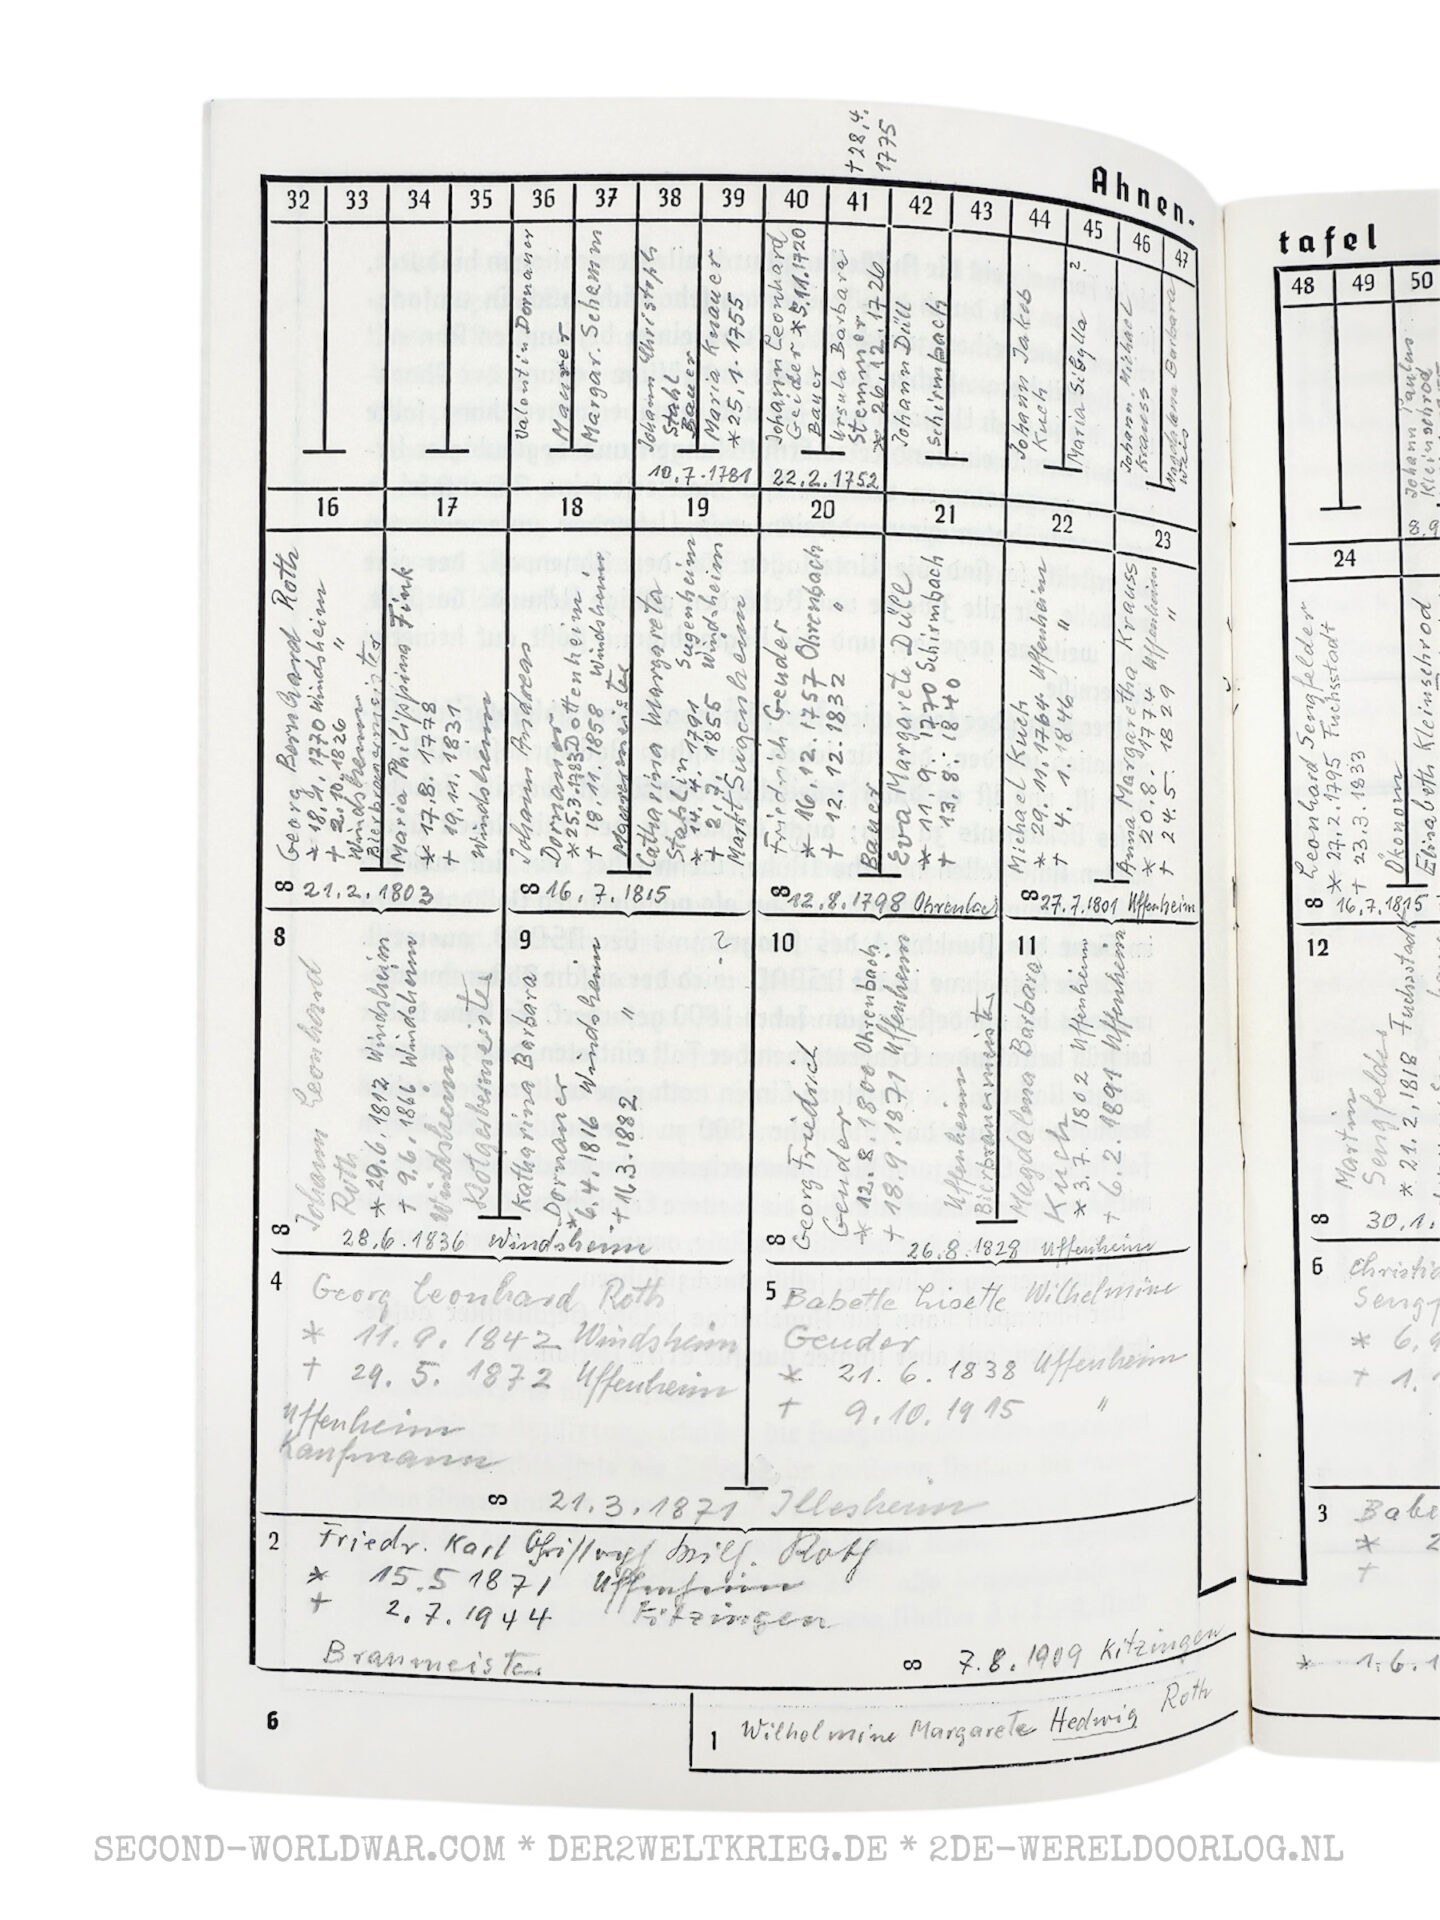 † 28.4.
1775
Ahnen-
32 33 34 35 36 37 38 39 40 41 42 43 44 45 46 47
Valentin Dornauer
Maurer
Margar. Schemm
Johann Christoph
Stahl
Bauer
Maria Knauer
* 25.1.1755
10.7.1781
Johann Leonhard
Geider * 5.11.1720
Bauer
Ursula Barbara
Stemmer
* 26.12.1726
22.2.1752
Johann Düll
Schirmbach
Johann Jakob
Kuch
Maria Sibylla ?
Johann Michael
Krauss
Magdalena Barbara
Weis
16 17 18 19 20 21 22 23
Georg Bernhard Roth
* 18.4.1770 Windsheim
† 2.10.1826 "
Windsheim
Bierbrauermeister
Maria Philippina Fink
* 17.8.1778
† 19.11.1831
Windsheim
8 21.2.1803
Johann Andreas
Dornauer
* 25.3.1783 Dottenheim
† 18.11.1858 Windsheim
Maurermeister
Catharina Margareta
Stahlin
* 14.4.1791 Sugenheim
† 2.7.1855 Windsheim
Markt Sugenheim
8 16.7.1815
Friedrich Geuder
* 16.12.1757 Ohrenbach
† 12.12.1832 "
Bauer
Eva Margarete Düll
* 11.9.1770 Schirmbach
† 13.8.1840
8 12.8.1798 Ohrenbach
Michael Kuch
* 29.11.1764 Uffenheim
† 4.1.1846 "
Anna Margaretha Krauss
* 20.8.1774 Uffenheim
† 24.5.1829 "
8 27.7.1801 Uffenheim
8
Johann Leonhard
Roth
* 29.6.1812 Windsheim
† 9.6.1866 Windsheim
Windsheim
Rotgerbermeister
9 ?
Katharina Barbara
Dornauer
* 6.4.1816 Windsheim
† 16.3.1882 "
8 28.6.1836 Windsheim
10
Georg Friedrich
Geuder
* 12.8.1800 Ohrenbach
† 18.9.1871 Uffenheim
Uffenheim
Bierbrauermeister
11
Magdalena Barbara
Kuch
* 3.7.1802 Uffenheim
† 6.2.1891 Uffenheim
8 26.8.1828 Uffenheim
4 Georg Leonhard Roth
* 11.9.1842 Windsheim
† 29.5.1872 Uffenheim
Uffenheim
Kaufmann
5 Babette Lisette Wilhelmine
Geuder
* 21.6.1838 Uffenheim
† 9.10.1915 "
8 21.3.1871 Illesheim
2 Friedr. Karl Christoph Wilh. Roth
* 15.5 1871 Uffenheim
† 2.7.1944 Kitzingen
Braumeister 8 7.8.1909 Kitzingen
6
1 Wilhelmine Margarete Hedwig Roth
tafel
48 49 50
Johann Paulus
Kleinschrod
8.9
24
Leonhard Sengfelder
* 27.2.1795 Fuchsstadt
† 23.3.1833
Ökonom
Elisabeth Kleinschrod
8 16.7.1815
12
Martin
Sengfelder
* 21.2.1818 Fuchsstadt
8 30.1.
6 Christia
Sengf
* 6.9
† 1.1
3 Babe
* 2
†
* 1.6.1
SECOND-WORLDWAR.COM * DER2WELTKRIEG.DE * 2DE-WERELDOORLOG.NL